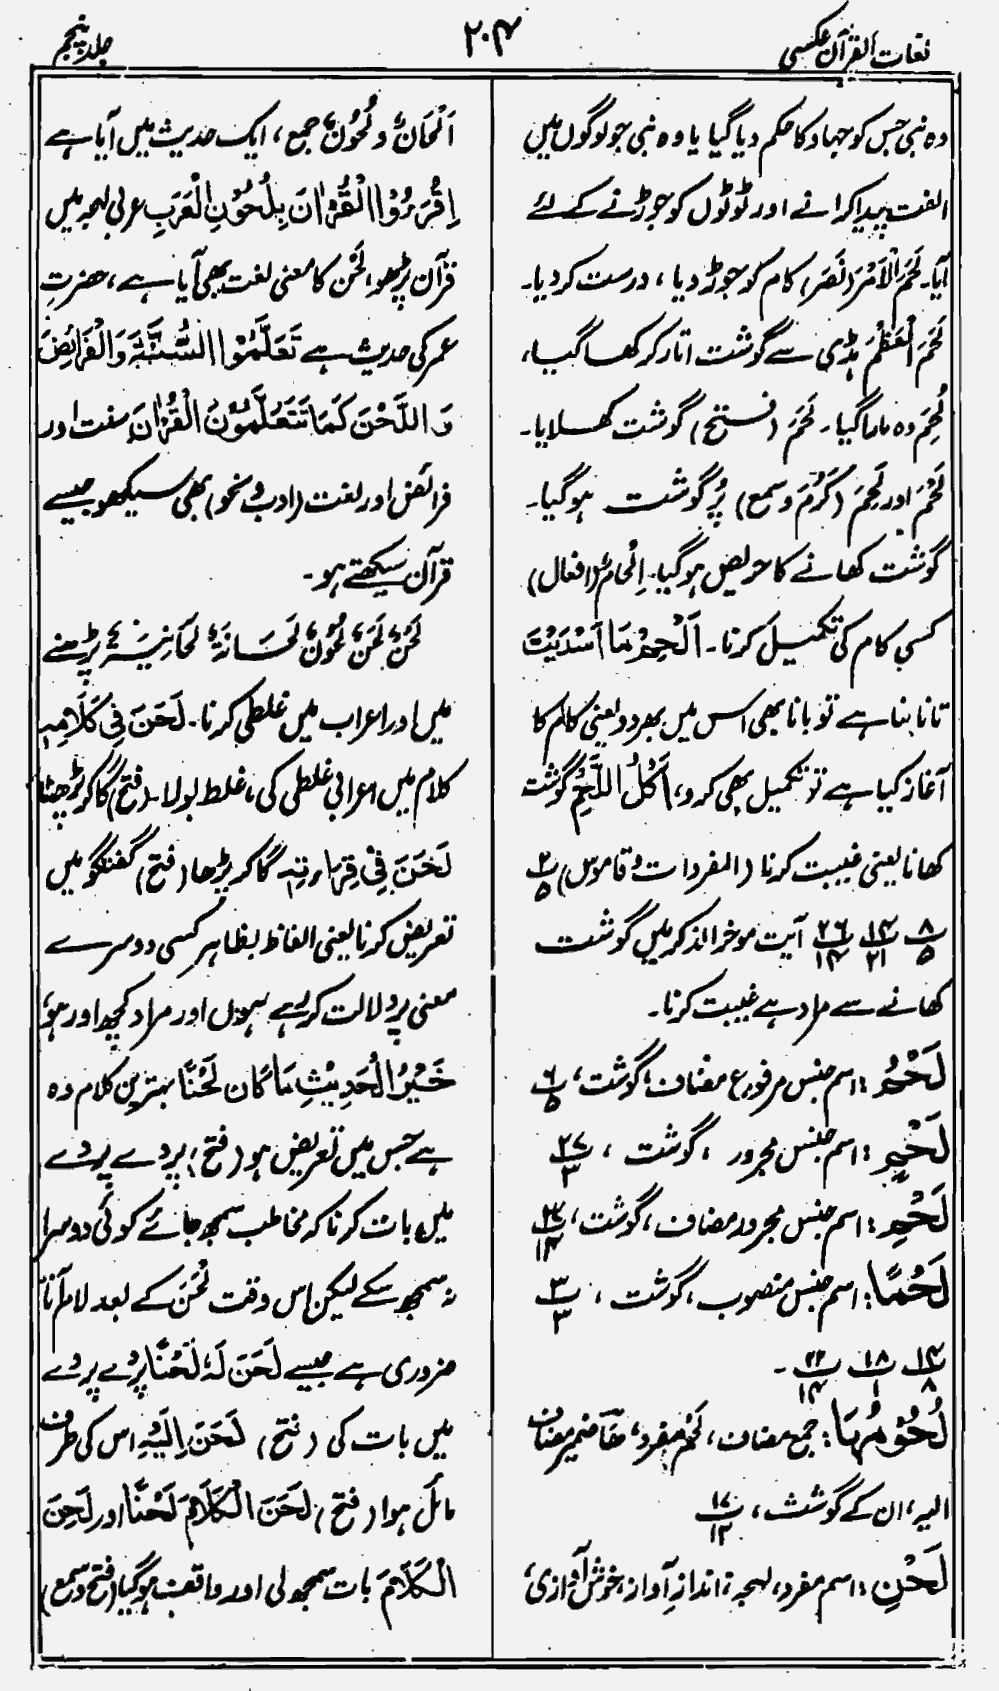 لغات القرآن عکسی
۲۰۴
جلد پنجم
وہ نبی جس کو جہاد کا حکم دیا گیا یا وہ نبی جو لوگوں میں
الفت پیدا کرانے اور ٹوٹوں کو جوڑنے کے لئے
آیا۔ لَحَمَ الْاَمْرَ (نَصَرَ) کام کو جوڑ دیا ، درست کر دیا۔
لَحَمَ الْعَظْمَ ہڈی سے گوشت اتار کر کھا گیا،
لُحِمَ وہ مارا گیا۔ لَحَمَ (فتح) گوشت کھلایا۔
لَحُمَ اور لَحِمَ (کَرُمَ و سمع) پُر گوشت ہو گیا۔
گوشت کھانے کا حریص ہو گیا۔ اِلْحَامٌ (افعال)
کسی کام کی تکمیل کرنا۔ اَلْحِمْ مَا اَسْدَیْتَ
تانا بنا ہے تو بانا بھی اس میں بھر دو یعنی کا لم کا
آغاز کیا ہے تو تکمیل بھی کرو، اَکْلُ اللَّحْمِ گوشت
کھانا یعنی غیبت کرنا (المفردات و قاموس) ۲/۵
۸/۵ ۱۴/۲۱ ۲۶/۱۴ آیت موخر الذکر میں گوشت
کھانے سے مراد ہے غیبت کرنا۔
لَحْمُ : اسم جنس مرفوع مضاف، گوشت، ۶/۵
لَحْمٍ : اسم جنس مجرور ، گوشت ، ۲۷/۳
لَحْمِ : اسم جنس مجرور مضاف ، گوشت، /۱۴
لَحْمًا : اسم جنس منصوب ، گوشت ، ۳/۳
۱۴/۸ ۱۸/۱ ۲۲/۱۴ ۔
لُحُوْمُہَا : جمع مضاف ، لَحْمٌ مفرد، ھَا ضمیر مضاف
الیہ ، ان کے گوشت ، ۱۷/۱۲
لَحْنِ : اسم مفرد، لہجہ ، اندازِ آواز، خوش آوازی،
اَلْحَانٌ و لُحُوْنٌ جمع ، ایک حدیث میں آیا ہے
اِقْرَءُوْا الْقُرْاٰنَ بِلُحُوْنِ الْعَرَبِ عربی لہجہ میں
قرآن پڑھو، لَحْن کا معنی لغت بھی آیا ہے ، حضرتِ
عمر کی حدیث ہے تَعَلَّمُوْا السُّنَّةَ وَالْفَرَائِضَ
وَ اللَّحْنَ کَمَا تَتَعَلَّمُوْنَ الْقُرْاٰنَ سنت اور
فرائض اور لغت (ادب و نحو) بھی سیکھو جیسے
قرآن سیکھتے ہو۔
لَحْنٌ لَحَنٌ لُحُوْنٌ لَحَانَةٌ لَحَانِیَةٌ پڑھنے
میں اور اعراب میں غلطی کرنا۔ لَحَنَ فِی کَلَامِہٖ
کلام میں اعرابی غلطی کی ، غلط بولا۔ (فتح) گا کر پڑھنا
لَحَنَ فِیْ قِرَاءَتِہٖ گا کر پڑھا (فتح) گفتگو میں
تعریض کرنا یعنی الفاظ بظاہر کسی دوسرے
معنی پر دلالت کر رہے ہوں اور مراد کچھ اور ہو،
خَیْرُ الْحَدِیْثِ مَا کَان لَحْنًا بہترین کلام وہ
ہے جس میں تعریض ہو (فتح) پردے پردے
میں بات کرنا کہ مخاطب سمجھ جائے کوئی دوسرا
نہ سمجھ سکے لیکن اس وقت لَحَنَ کے بعد لام آنا
ضروری ہے جیسے لَحَنَ لَہٗ لَحْنًا پردے پردے
میں بات کی (فتح) لَحَنَ اِلَیْہِ اس کی طرف
مائل ہوا (فتح) لَحَنَ الْکَلَامَ لَحْنًا اور لَحِنَ
الْکَلَامَ بات سمجھ لی اور واقف ہو گیا (فتح و سمع)